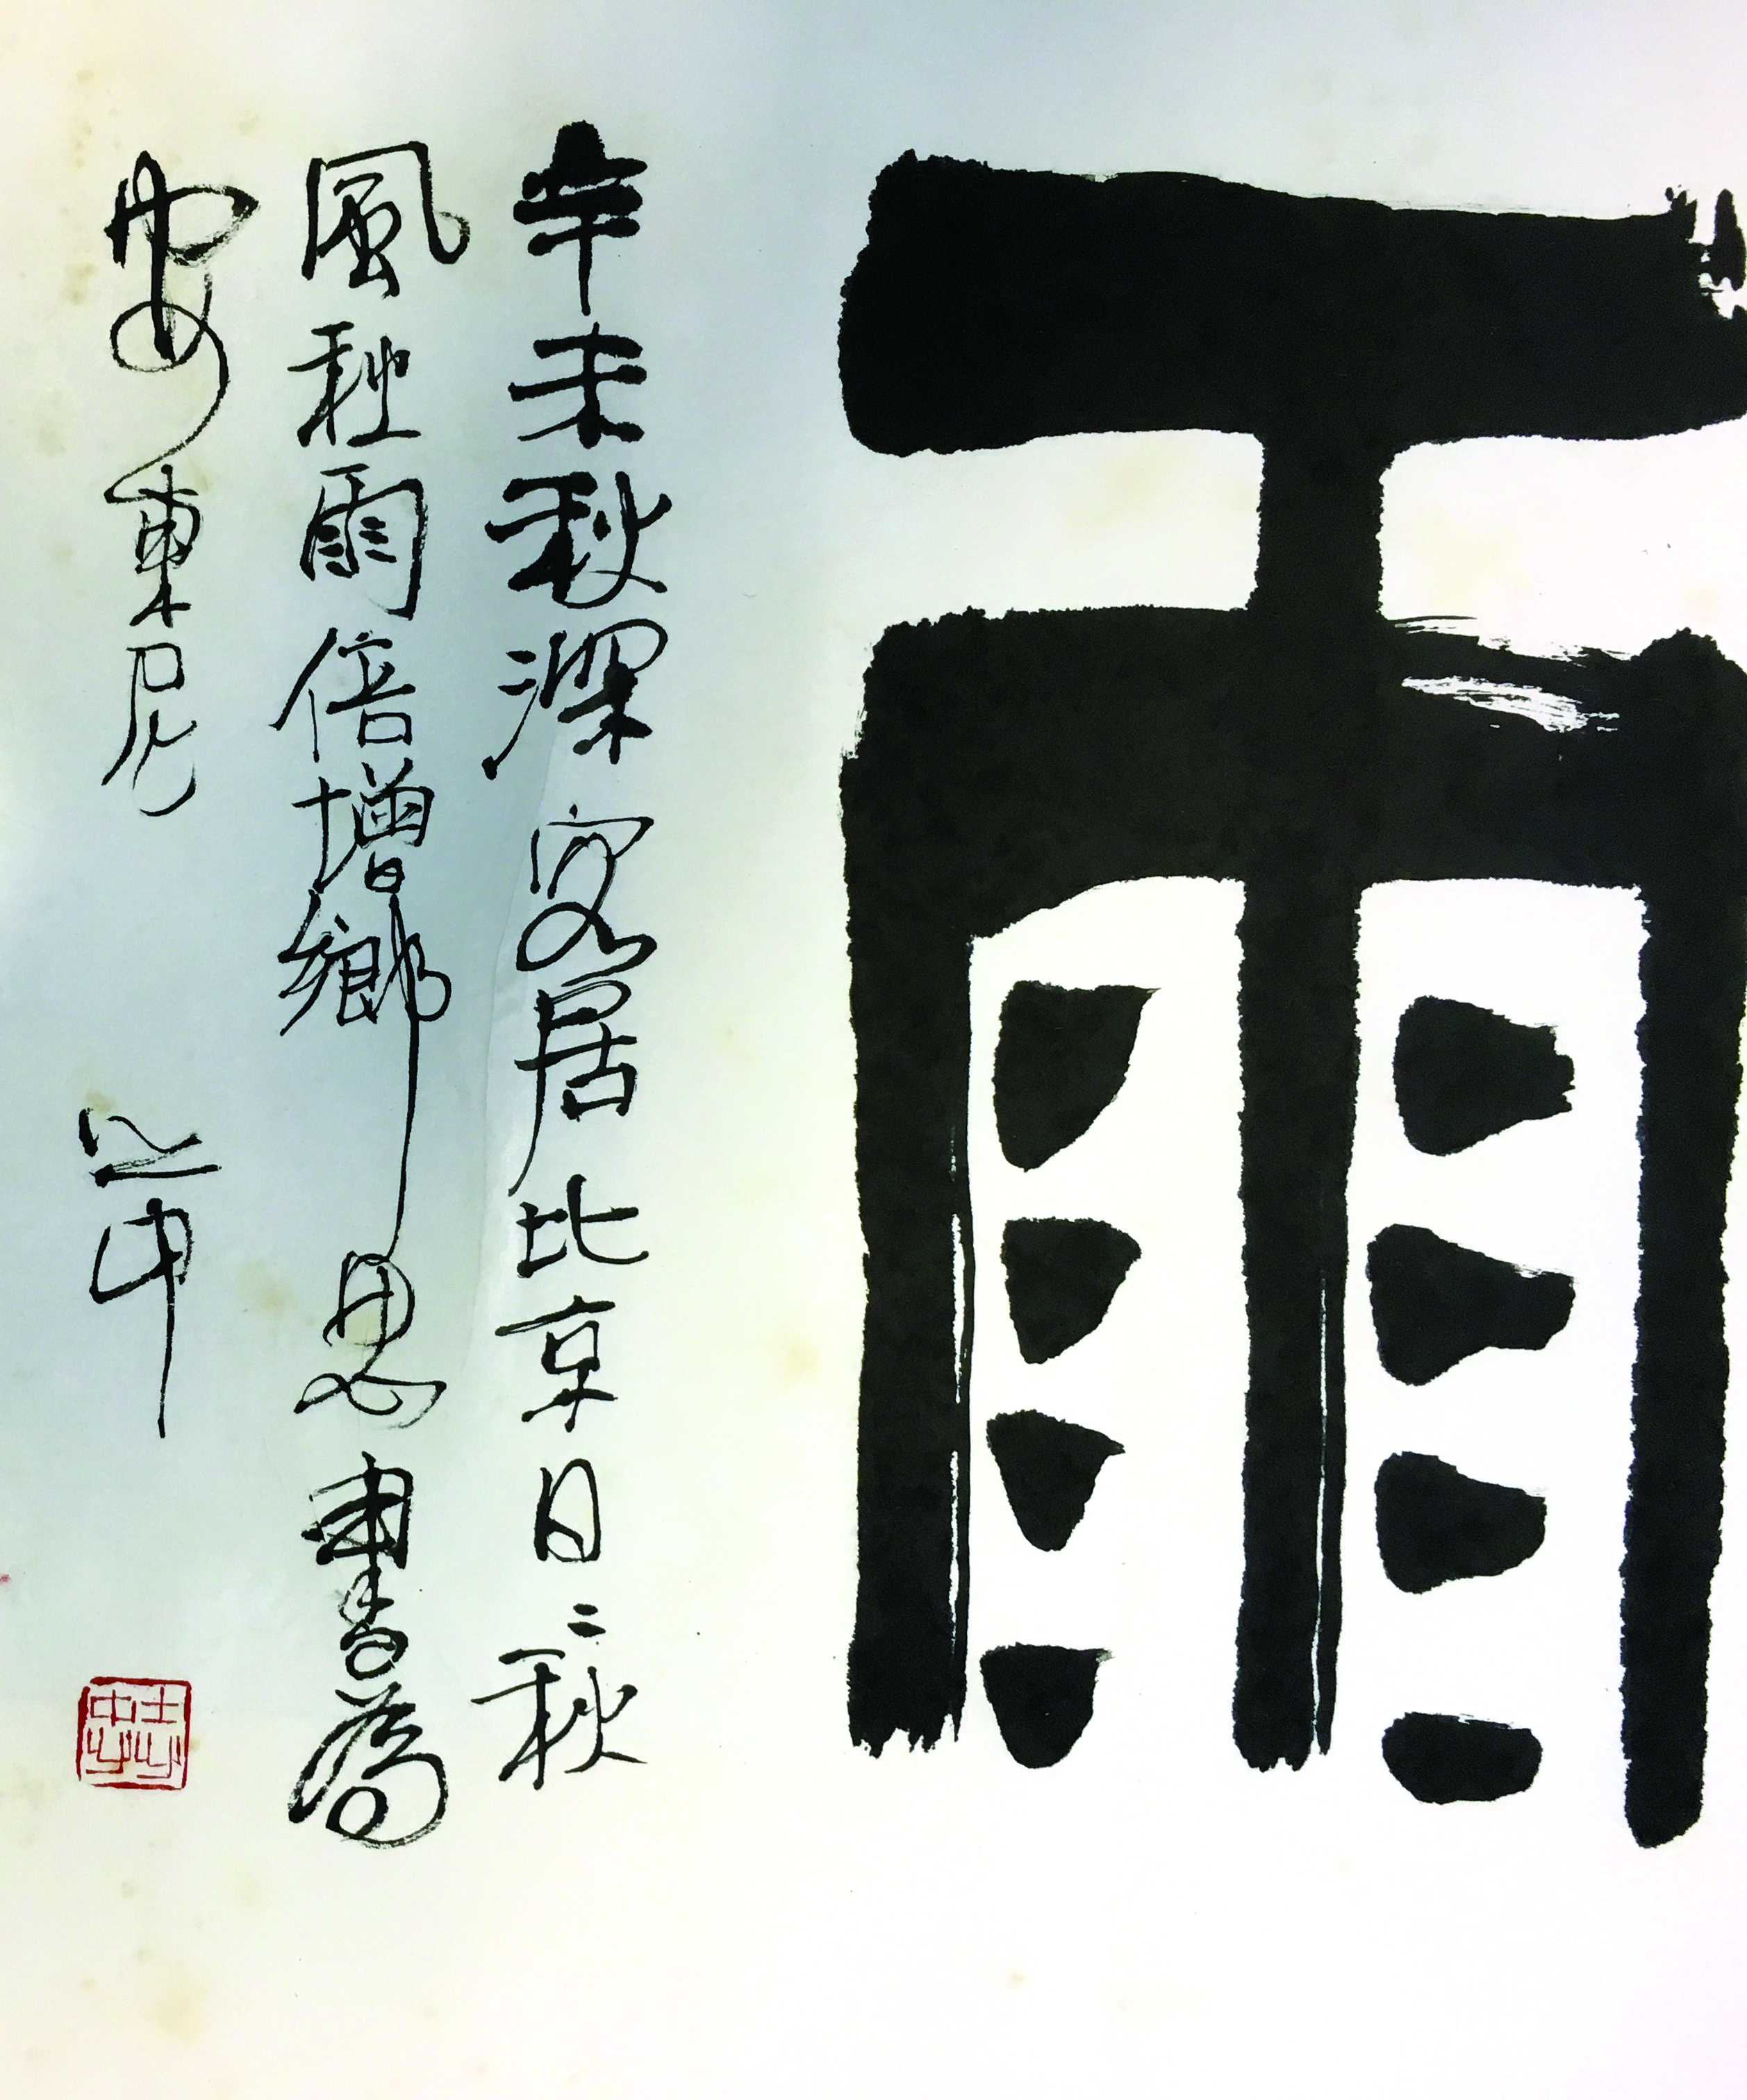 雨
辛未秋深客居北京日〻秋
風秋雨倍增鄉思書為
安東尼
志忠